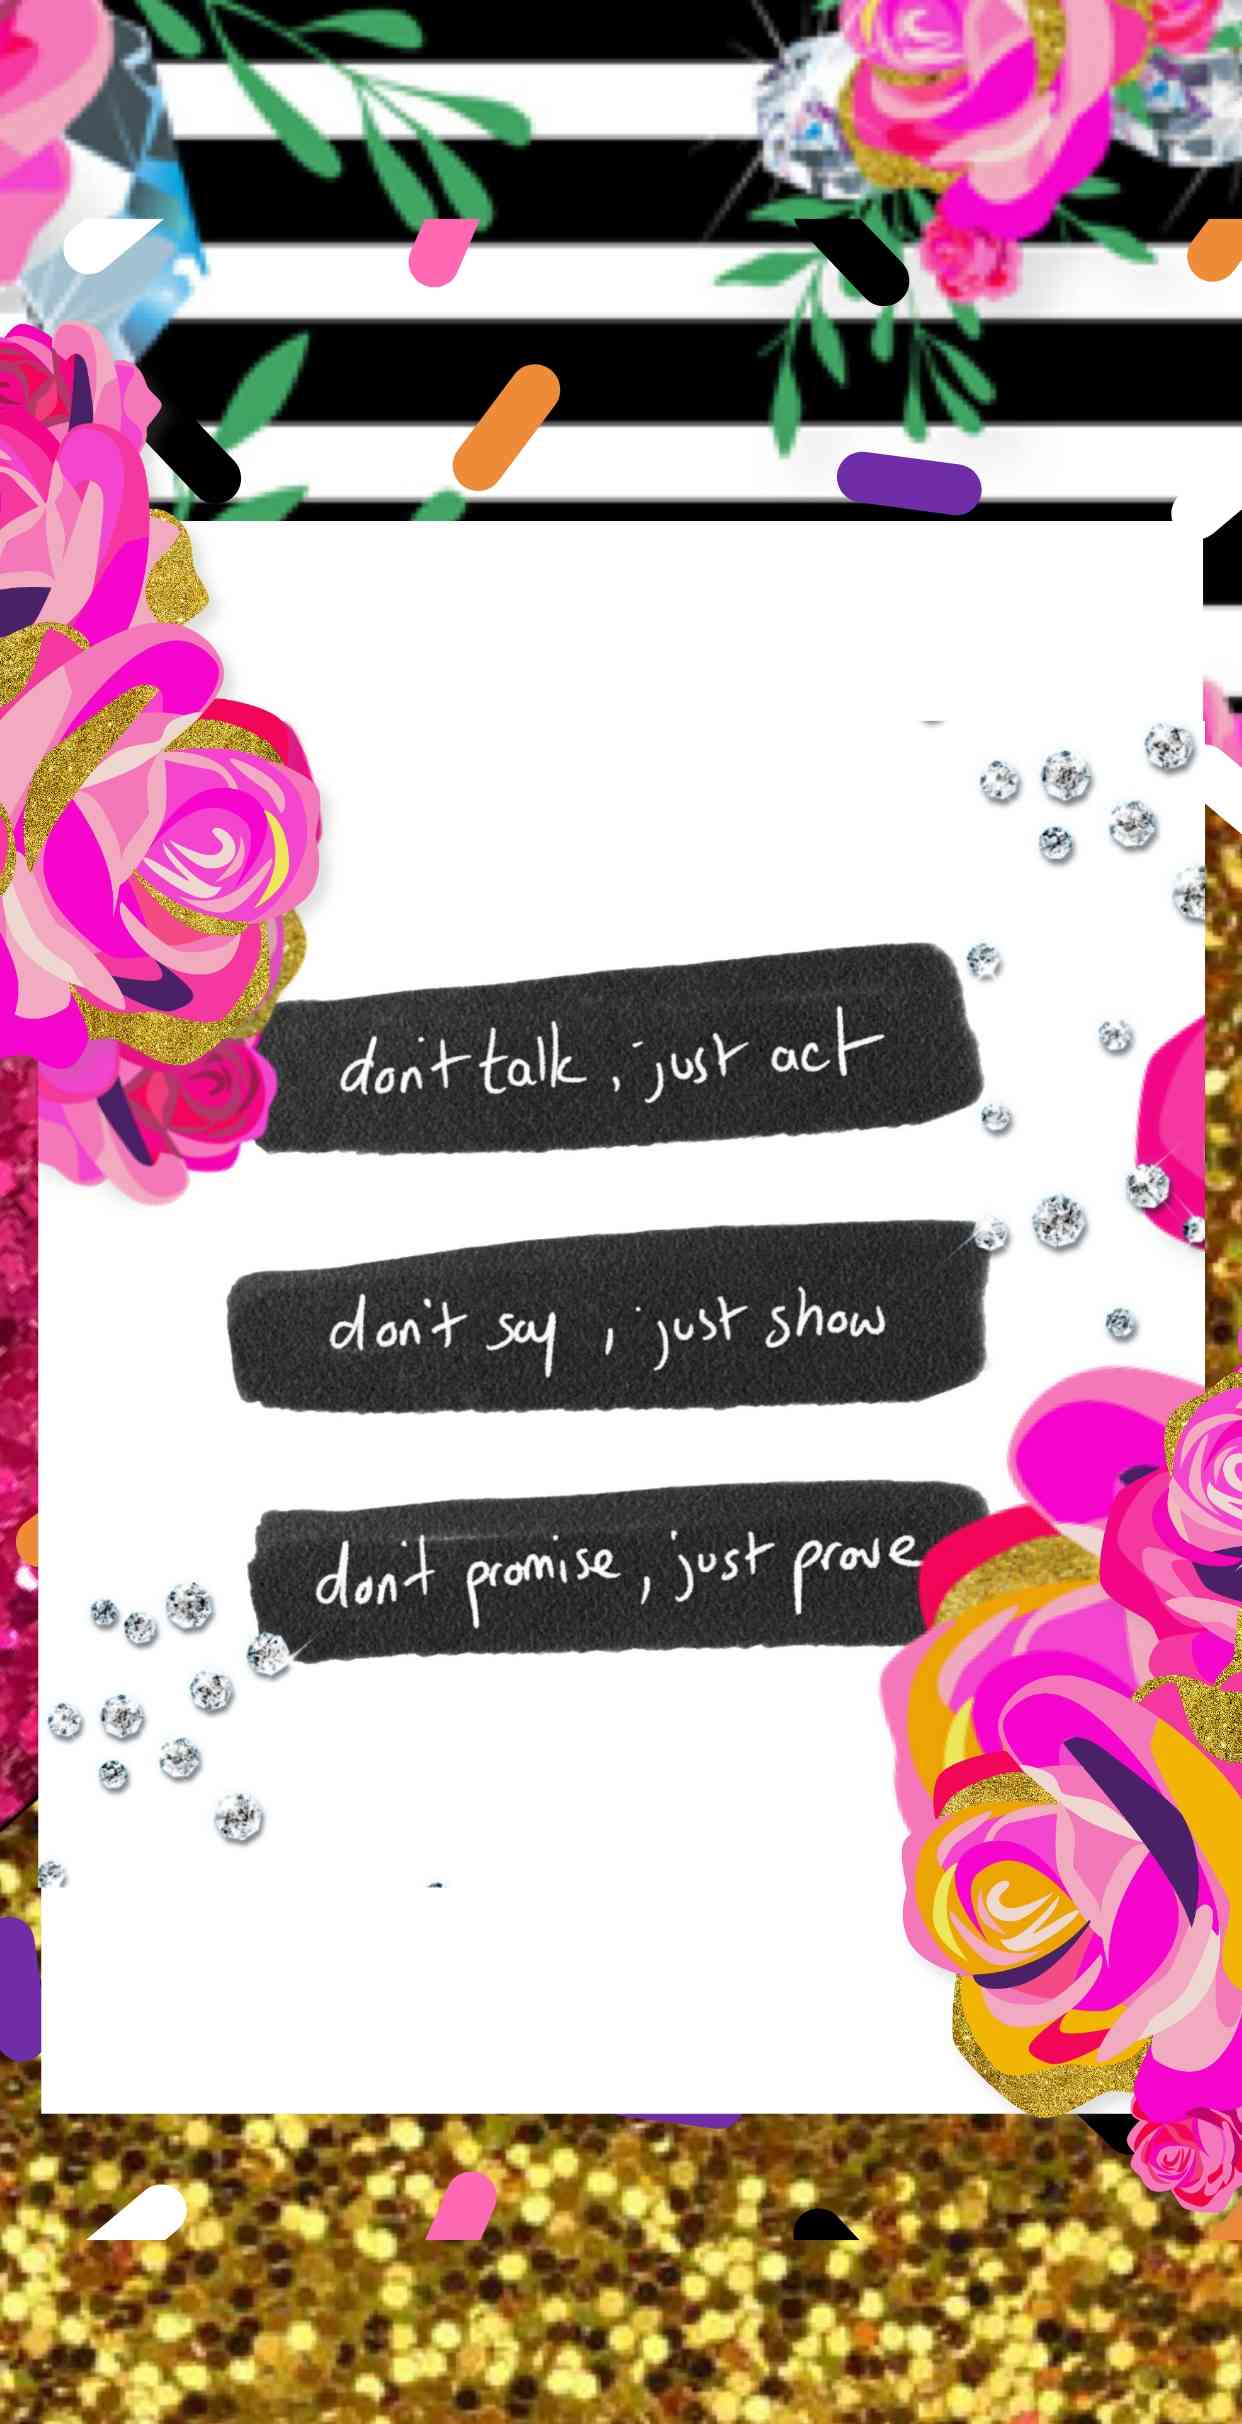 don't talk, just act
don't say, just show
don't promise, just prove